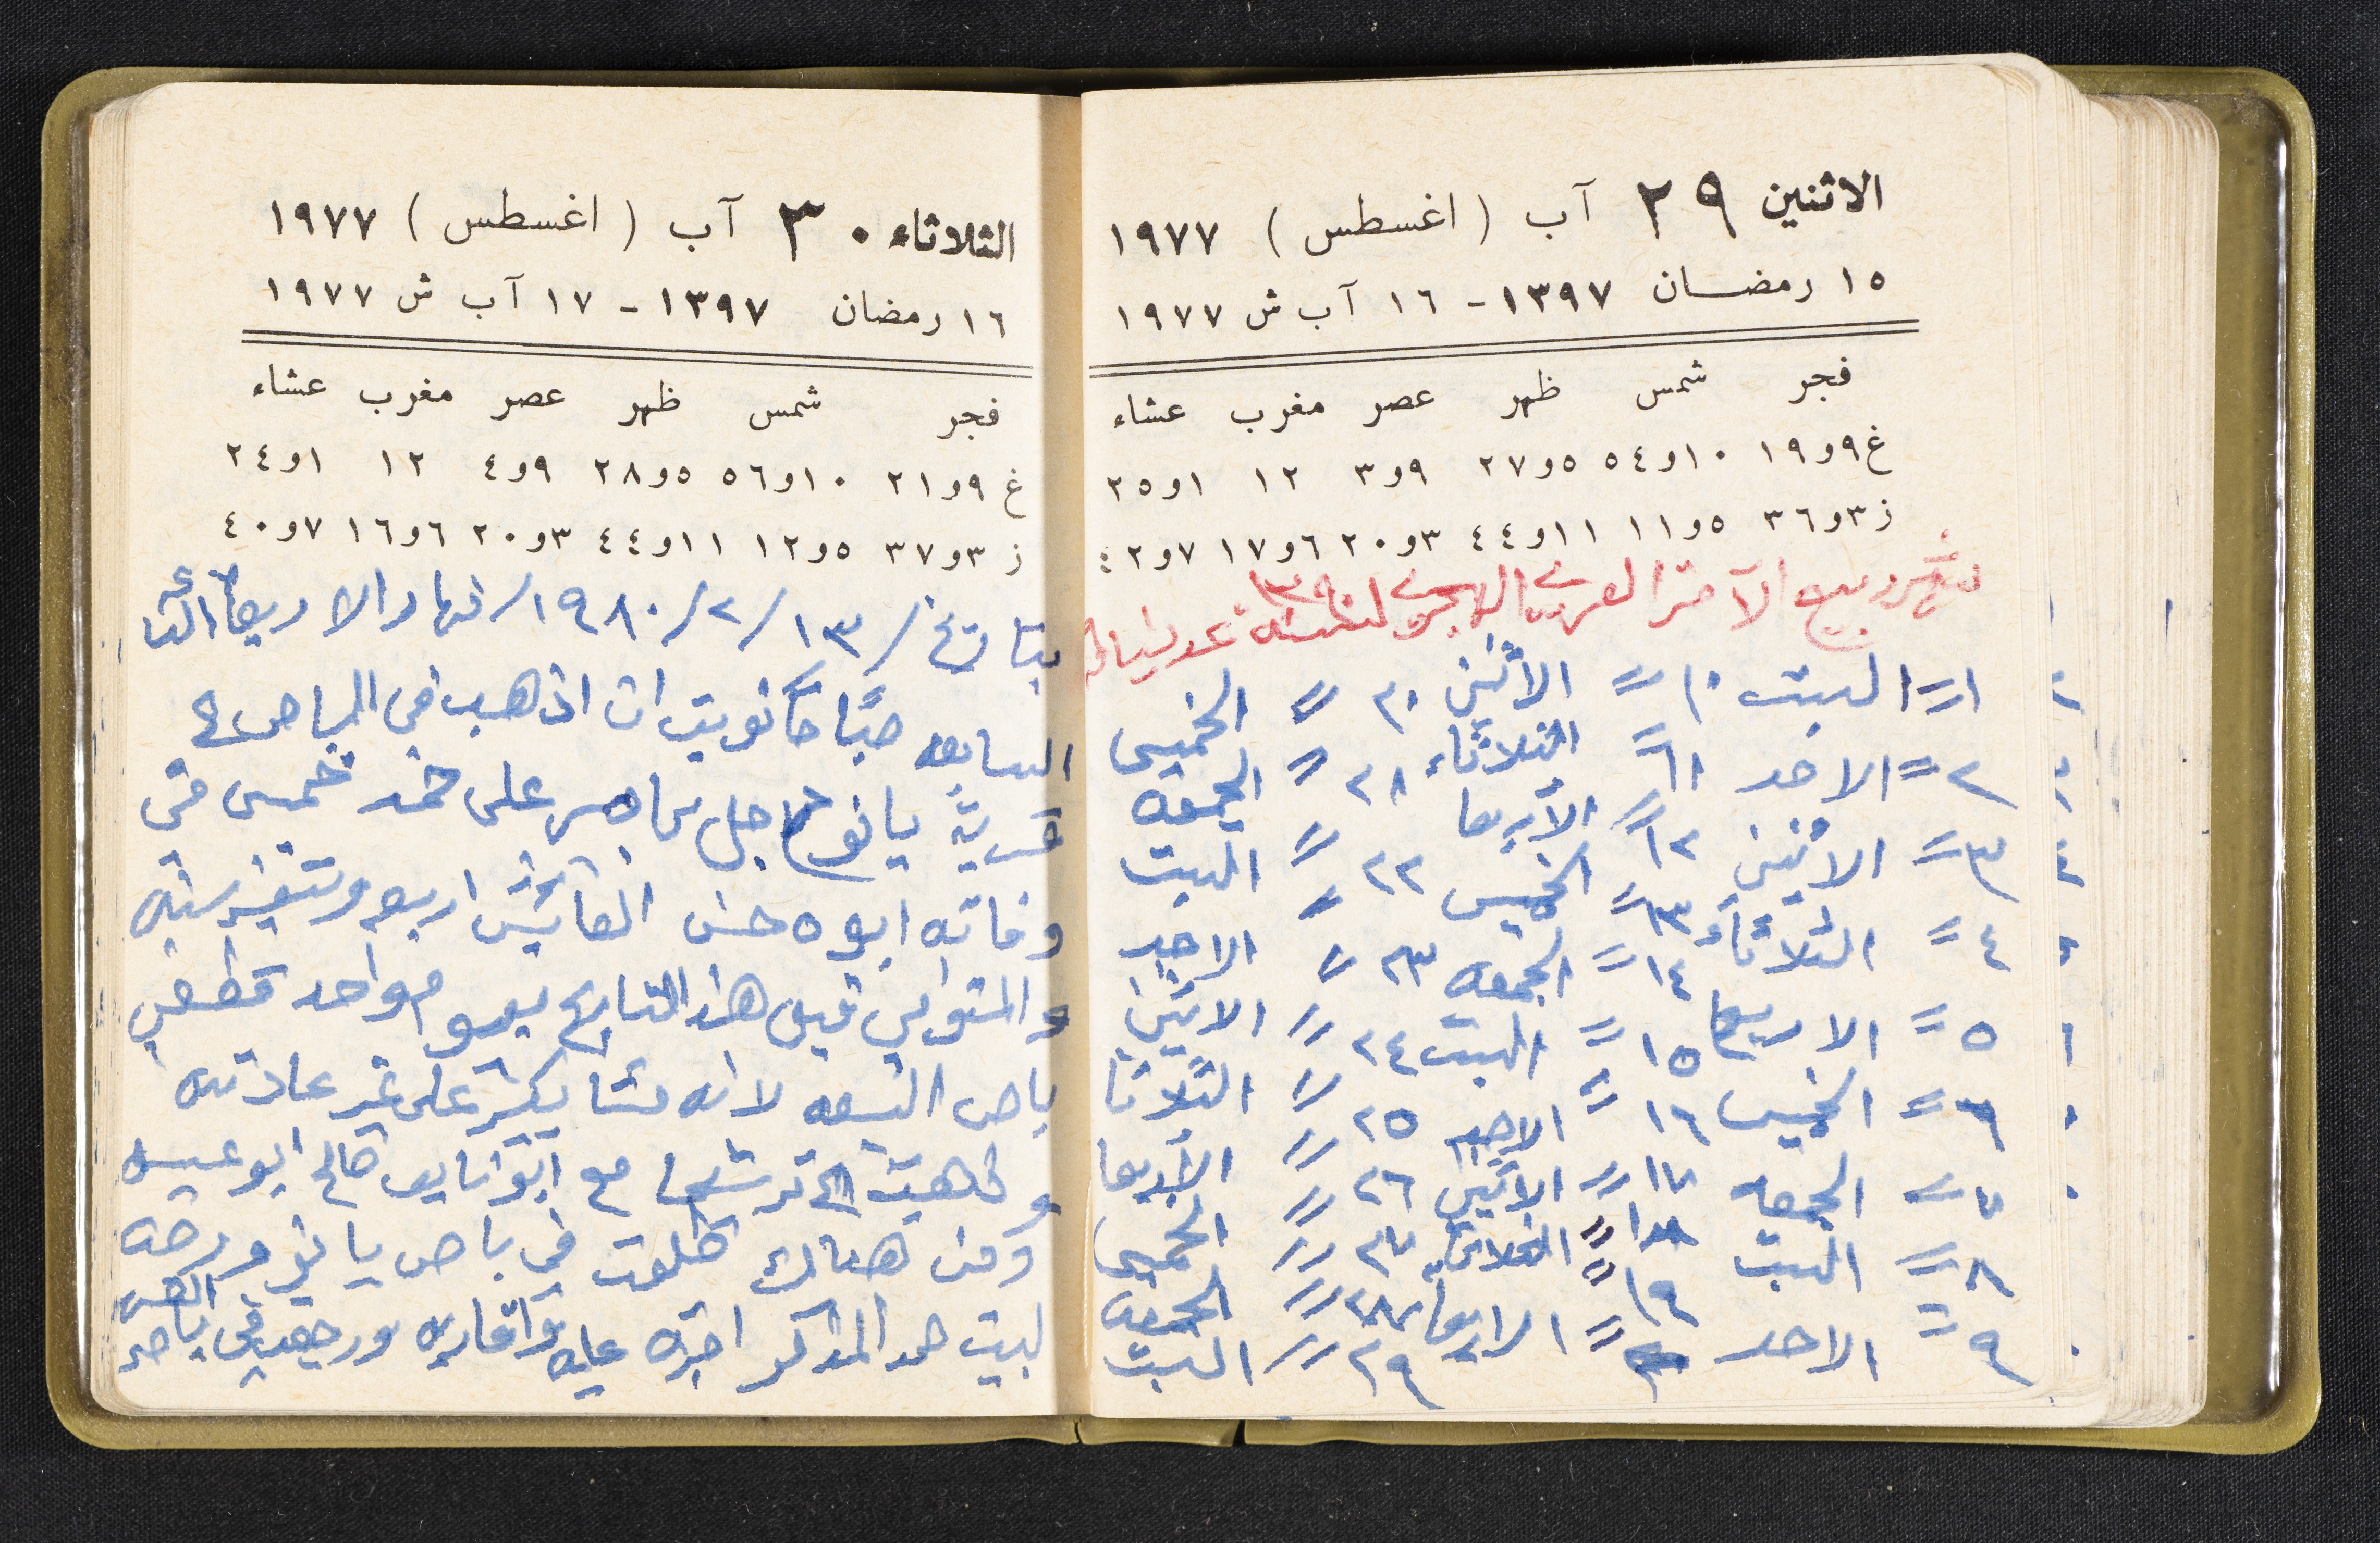 الاثنين ٢٩ آب ( اغسطس ) ١٩٧٧
١٥ رمضــان ١٣٩٧ - ١٦ آب ش ١٩٧٧
فجر شمس ظهر عصر مغرب عشاء
غ ٩و١٩ ١٠و٥٤ ٥و٢٧ ٩و٣ ١٢ ١و٢٥
ز ٣و٣٦ ٥و١١ ١١و٤٤ ٣و٢٠ ٦و١٧ ٧و٤٢
شهر ربيع الآخر العربي الهجري لسنة
١ = السبت ١٠ = الاثنين ٢٠ = الخميس
٢ = الاحد ١١ = الثلاثاء ٢١ = الجمعه
٣ = الاثنين ١٢ = الأربعا ٢٢ = السبت
٤ = الثلاثاء ١٣ = الخميس ٢٣ = الاحد
٥ = الاربعا ١٤ = الجمعه ٢٤ = الاثنين
٦ = الخميس ١٥ = السبت ٢٥ = الثلاثا
٧ = الجمعه ١٦ = الاحد ٢٦ = الأربعا
٨ = السبت ١٧ = الاثنين ٢٧ = الخميس
٩ = الاحد ١٨ = الثلاثاء ٢٨ = الجمعه
١٩ = الاربعا ٢٩ = السبت
الثلاثاء ٣٠ آب ( اغسطس ) ١٩٧٧
١٦ رمضان ١٣٩٧ - ١٧ آب ش ١٩٧٧
فجر شمس ظهر عصر مغرب عشاء
غ ٩و٢١ ١٠و٥٦ ٥و٢٨ ٩و٤ ١٢ ١و٢٤
ز ٣و٣٧ ٥و١٢ ١١و٤٤ ٣و٢٠ ٦و١٦ ٧و٤٠
بتاريخ / ١٣ / ٢ / ١٩٨٠ / نهار الاربعا
السابعه صباحا نويت ان اذهب في الباص
قرية يانوح اجل على حمد خميس في
وفاته ابوه حسن اربعه سنه
والمتوفي قبل هذا التاريخ واحد قطعني
باص التسعه لانه على غير عادته
وذهبت ترشيحا مع صالح ابو
ومن هناك طلعت في باص يانوح
لبيت حمد المذكور عليه واقاربه ورجعت في باص